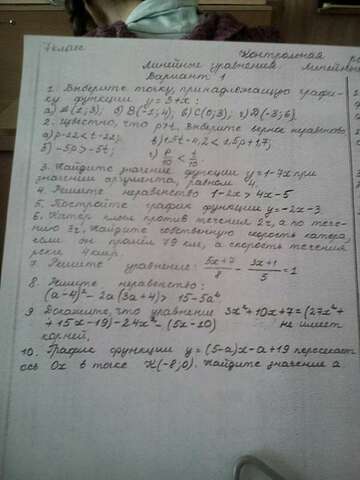 7 класс
Контрольная
линейные уравнения. линейны
Вариант 1
1. Выберите точку, принадлежащую графи-
ку функции y=3+x:
а) A(2;3); б) B(-1;4); в) C(0;3); г) D(-3;6)
2. Известно, что p>t. Выберите верное неравенство
а) p-22<t-22; в) 1,5t-4,2<1,5p+1,7;
б) -5p>-5t; г) p/10 < t/10.
3. Найдите значение функции y=1-9x при
значении аргумента, равном 4.
4. Решите неравенство 1-2x>4x-5
5. Постройте график функции y=-2x-3.
6. Катер плыл против течения 2ч, а по тече-
нию 3ч. Найдите собственную скорость катера,
если он прошёл 79 км, а скорость течения
реки 4 км/ч.
7. Решите уравнение: (5x+7)/8 - (3x+1)/5 = 1
8. Решите неравенство:
(a-4)² - 2a(3a+4) > 15-5a²
9. Докажите, что уравнение 3x²+10x+7=(27x²+
+15x-19)-24x²-(5x-10) не имеет
корней.
10. График функции y=(5-a)x-a+19 пересекает
ось Ox в точке K(-8;0). Найдите значение a